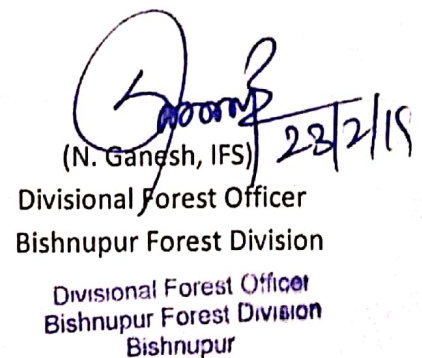 (N. Ganesh, IFS)
23/2/19
Divisional Forest Officer
Bishnupur Forest Division
Divisional Forest Officer
Bishnupur Forest Division
Bishnupur